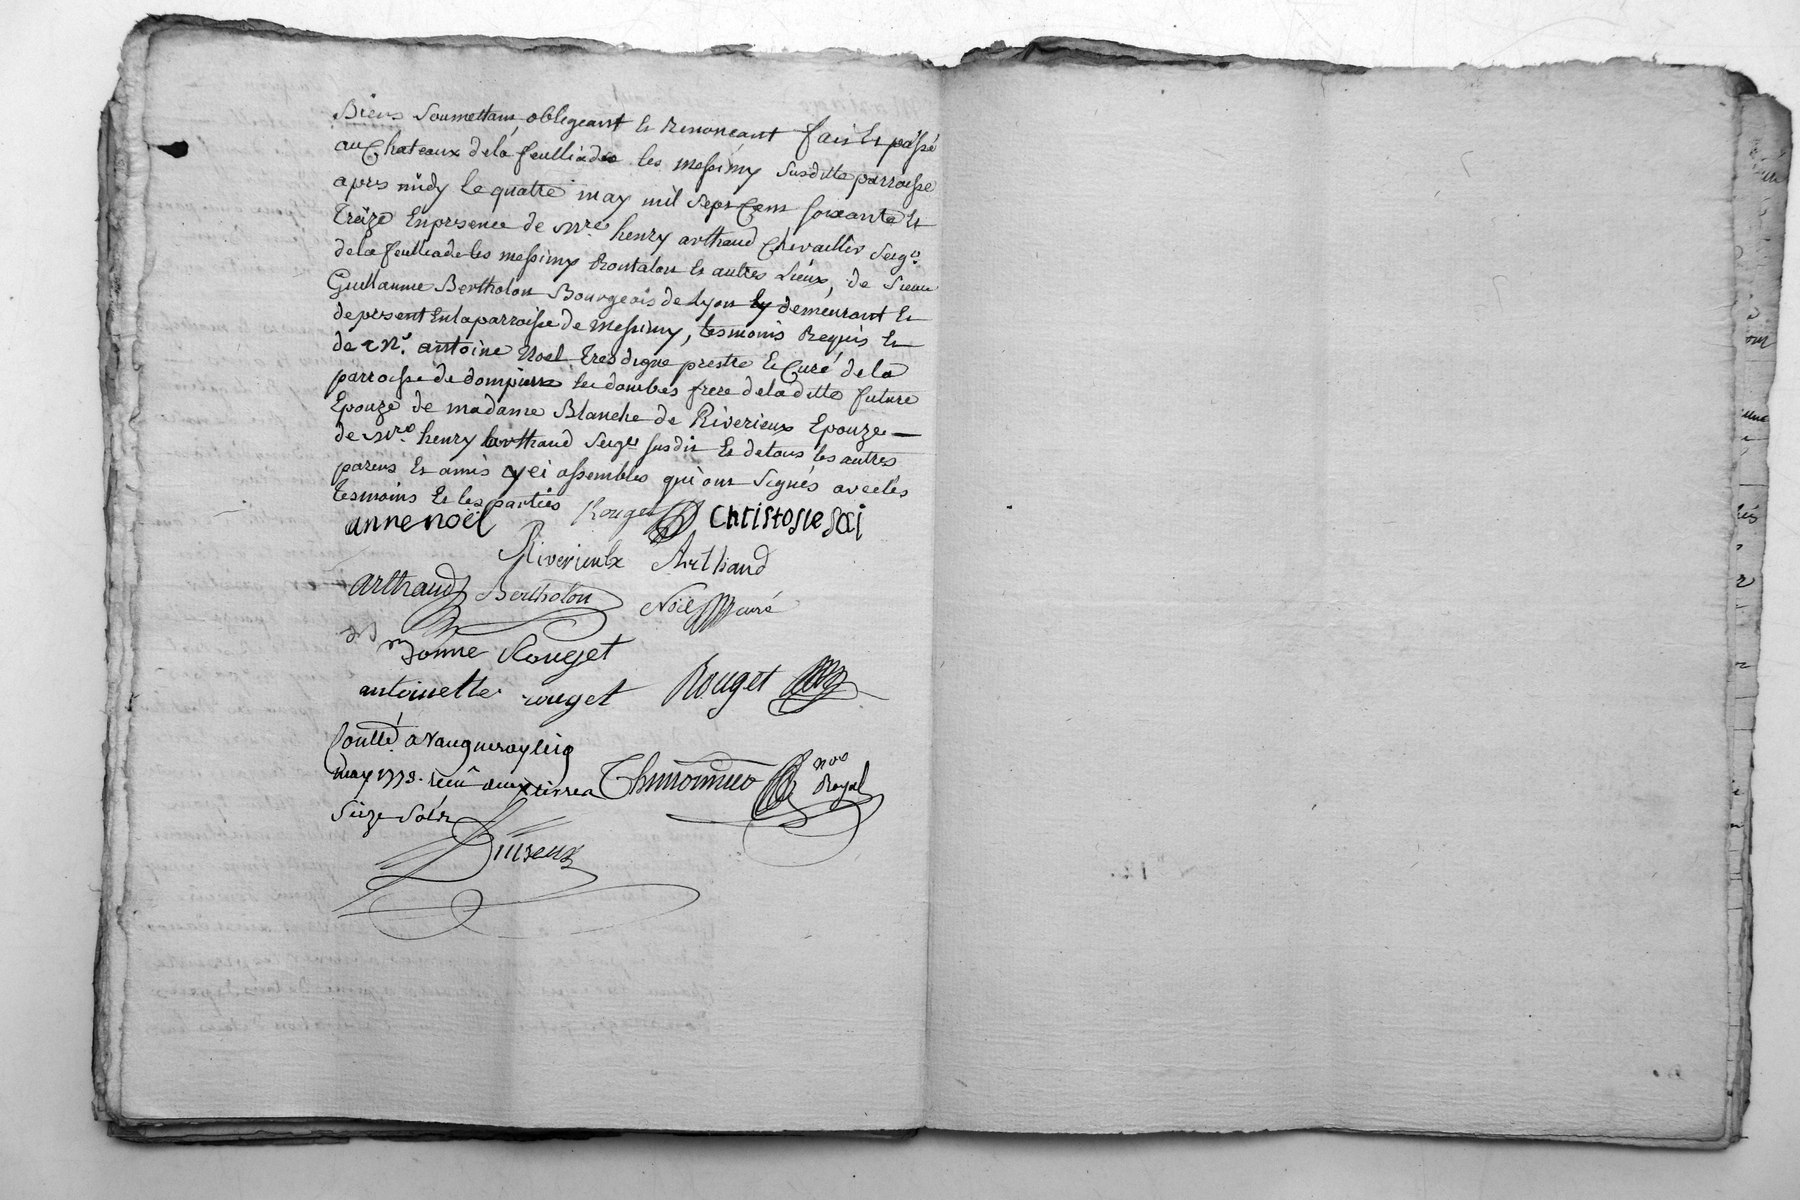 Biens soumettant obligeant et Renoncant fait et passé
au Chateaux dela feulliade les messimy susditte parroisse
apres midy le quatre may mil sept Cent soixante et
treize En presence de Mre henry arthaud chevallier seigr
dela feulliade les messimy Rontalon et autres Lieux, de sieur
Guillaume Bertholon Bourgeois de Lyon y demeurant et
de present En la parroisse de messimy, tesmoins Requis et
de Mre antoine Noel tres digne prestre et Curé de la
parroisse de dompierre les dombes frere dela ditte future
Epouze de madame Blanche de Riverieux Epouze
de Mre henry arthaud seigr susdit et de tous les autres
parens et amis cy assembles qui ont signés avec les
tesmoins et les parties
anne noël Rouget Christofle
Riverieulx Arthaud
arthaud Bertholon Noël curé
Bonne Rouget
antoinette rouget Rouget
Contlé a Vaugneray le
may 1773. reçu deux livres
seize sols
nre
Royal